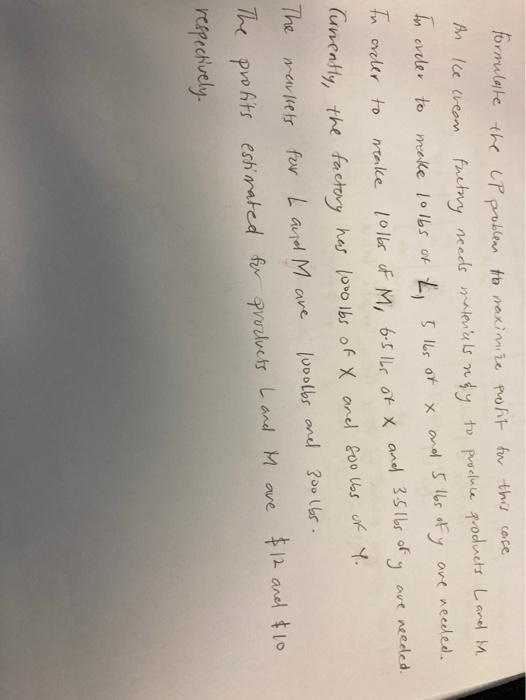 formulate the LP problem to maximize profit for this case
An Ice cream factory needs materials x & y to produce products L and M
In order to make 10 lbs of L, 5 lbs of x and 5 lbs of y are needed.
In order to make 10 lbs of M, 6.5 lbs of x and 3.5 lbs of y are needed.
Currently, the factory has 1000 lbs of X and 800 lbs of Y.
The markets for L and M are 1000 lbs and 300 lbs.
The profits estimated for products L and M are $12 and $10
respectively.